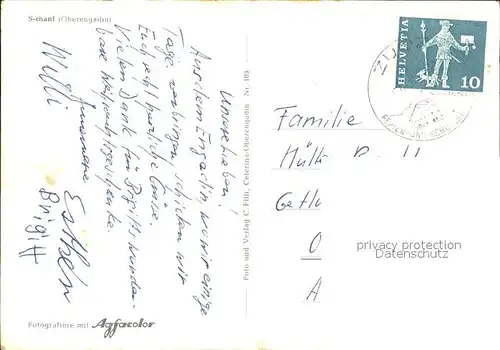 S-chanf (Oberengadin)
Unsere Lieben!
Aus dem Engadin, wo wir einige
Tage verbringen, schicken wir
Euch recht herzliche Grüsse.
Vielen Dank für Brigitts wunder-
bare Weihnachtsgeschenke.
Willi
Esther
Brigitt
Fotografiere mit Agfacolor
Foto und Verlag C. Filli, Celerina-Oberengadin Nr. 103
HELVETIA
10
ZU
FERIEN- UND
Familie
privacy protection
Datenschutz